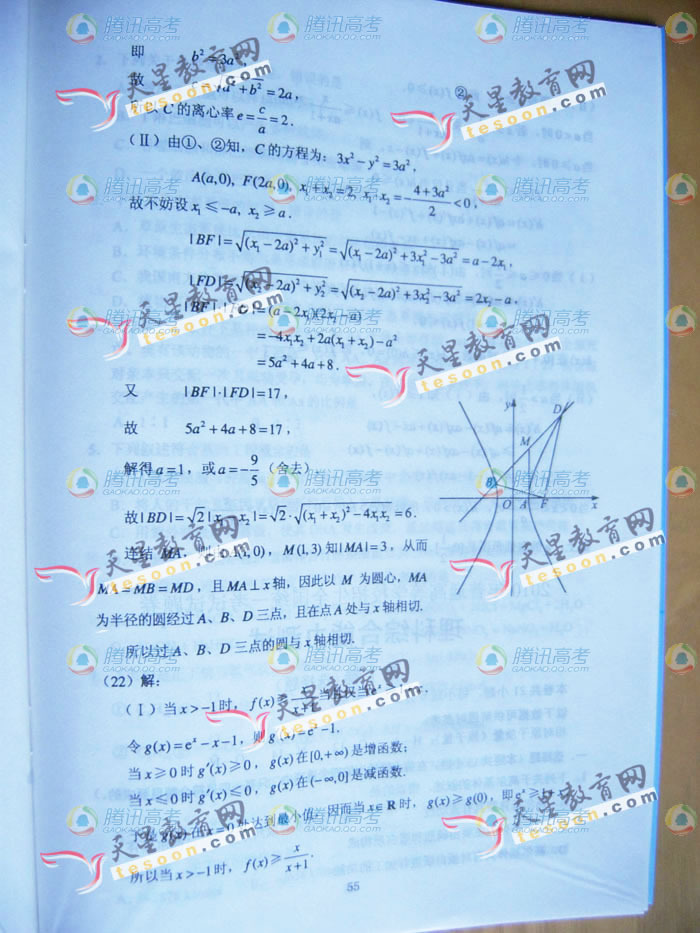 即 b²=3a²
故 a²+b² =2a, ②
所以 C 的离心率 e=c/a=2.
(Ⅱ) 由①、②知，C 的方程为：3x²－y²=3a²，
A(a,0), F(2a,0), x₁+x₂=2, x₁·x₂=－(4+3a²)/2<0,
故不妨设 x₁≤－a, x₂≥a.
|BF|=√((x₁－2a)²+y₁²)=√((x₁－2a)²+3x₁²－3a²)=a－2x₁,
|FD|=√((x₂－2a)²+y₂²)=√((x₂－2a)²+3x₂²－3a²)=2x₂－a.
|BF|·|FD|=(a－2x₁)(2x₂－a)
=－4x₁x₂+2a(x₁+x₂)－a²
=5a²+4a+8.
又 |BF|·|FD|=17,
故 5a²+4a+8=17,
解得 a=1，或 a=－9/5（舍去）.
故|BD|=√2|x₁－x₂|=√2·√((x₁+x₂)²－4x₁x₂)=6.
连结 MA，则由 A(1,0)，M(1,3) 知|MA|=3，从而
MA=MB=MD，且 MA⊥x 轴，因此以 M 为圆心，MA
为半径的圆经过 A、B、D 三点，且在点 A 处与 x 轴相切.
所以过 A、B、D 三点的圆与 x 轴相切.
y
D
M
B
O
A
F
x
(22) 解：
(Ⅰ) 当 x>－1时，f(x)≥x/(x+1) 当且仅当
令 g(x)=eˣ－x－1，则 g′(x)=eˣ－1.
当 x≥0 时 g′(x)≥0，g(x) 在[0,+∞) 是增函数；
当 x≤0 时 g′(x)≤0，g(x) 在(－∞,0] 是减函数.
于是 g(x) 在 x=0 处达到最小值，因而当 x∈R 时，g(x)≥g(0)，即 eˣ≥1+x.
所以当 x>－1 时，f(x)≥x/(x+1).
55
腾讯高考
GAOKAO.QQ.COM
天星教育网
tesoon.com